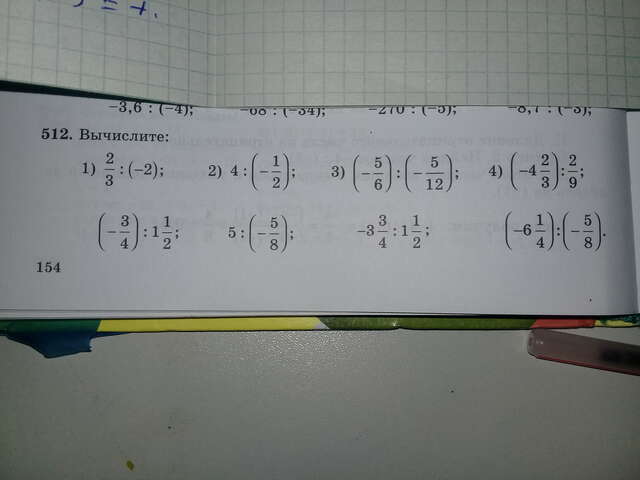 = 7.
-3,6 : (-4); -68 : (-34); -270 : (-5); -8,7 : (-3);
512. Вычислите:
1) 2/3 : (-2); 2) 4 : (-1/2); 3) (-5/6) : (-5/12); 4) (-4 2/3) : 2/9;
(-3/4) : 1 1/2; 5 : (-5/8); -3 3/4 : 1 1/2; (-6 1/4) : (-5/8).
154